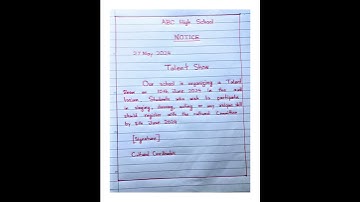 ABC High School
NOTICE
27 May 2024
Talent Show
Our school is organizing a Talent
Show on 10th June 2024 in the
Students who wish to participate
in singing, dancing, acting or any unique skill
should register with the cultural Committee
by 5th June 2024
[Signature]
Cultural Coordinator